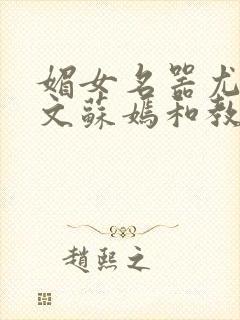 媚女名器尤
文蘇媽和教
趙熙之